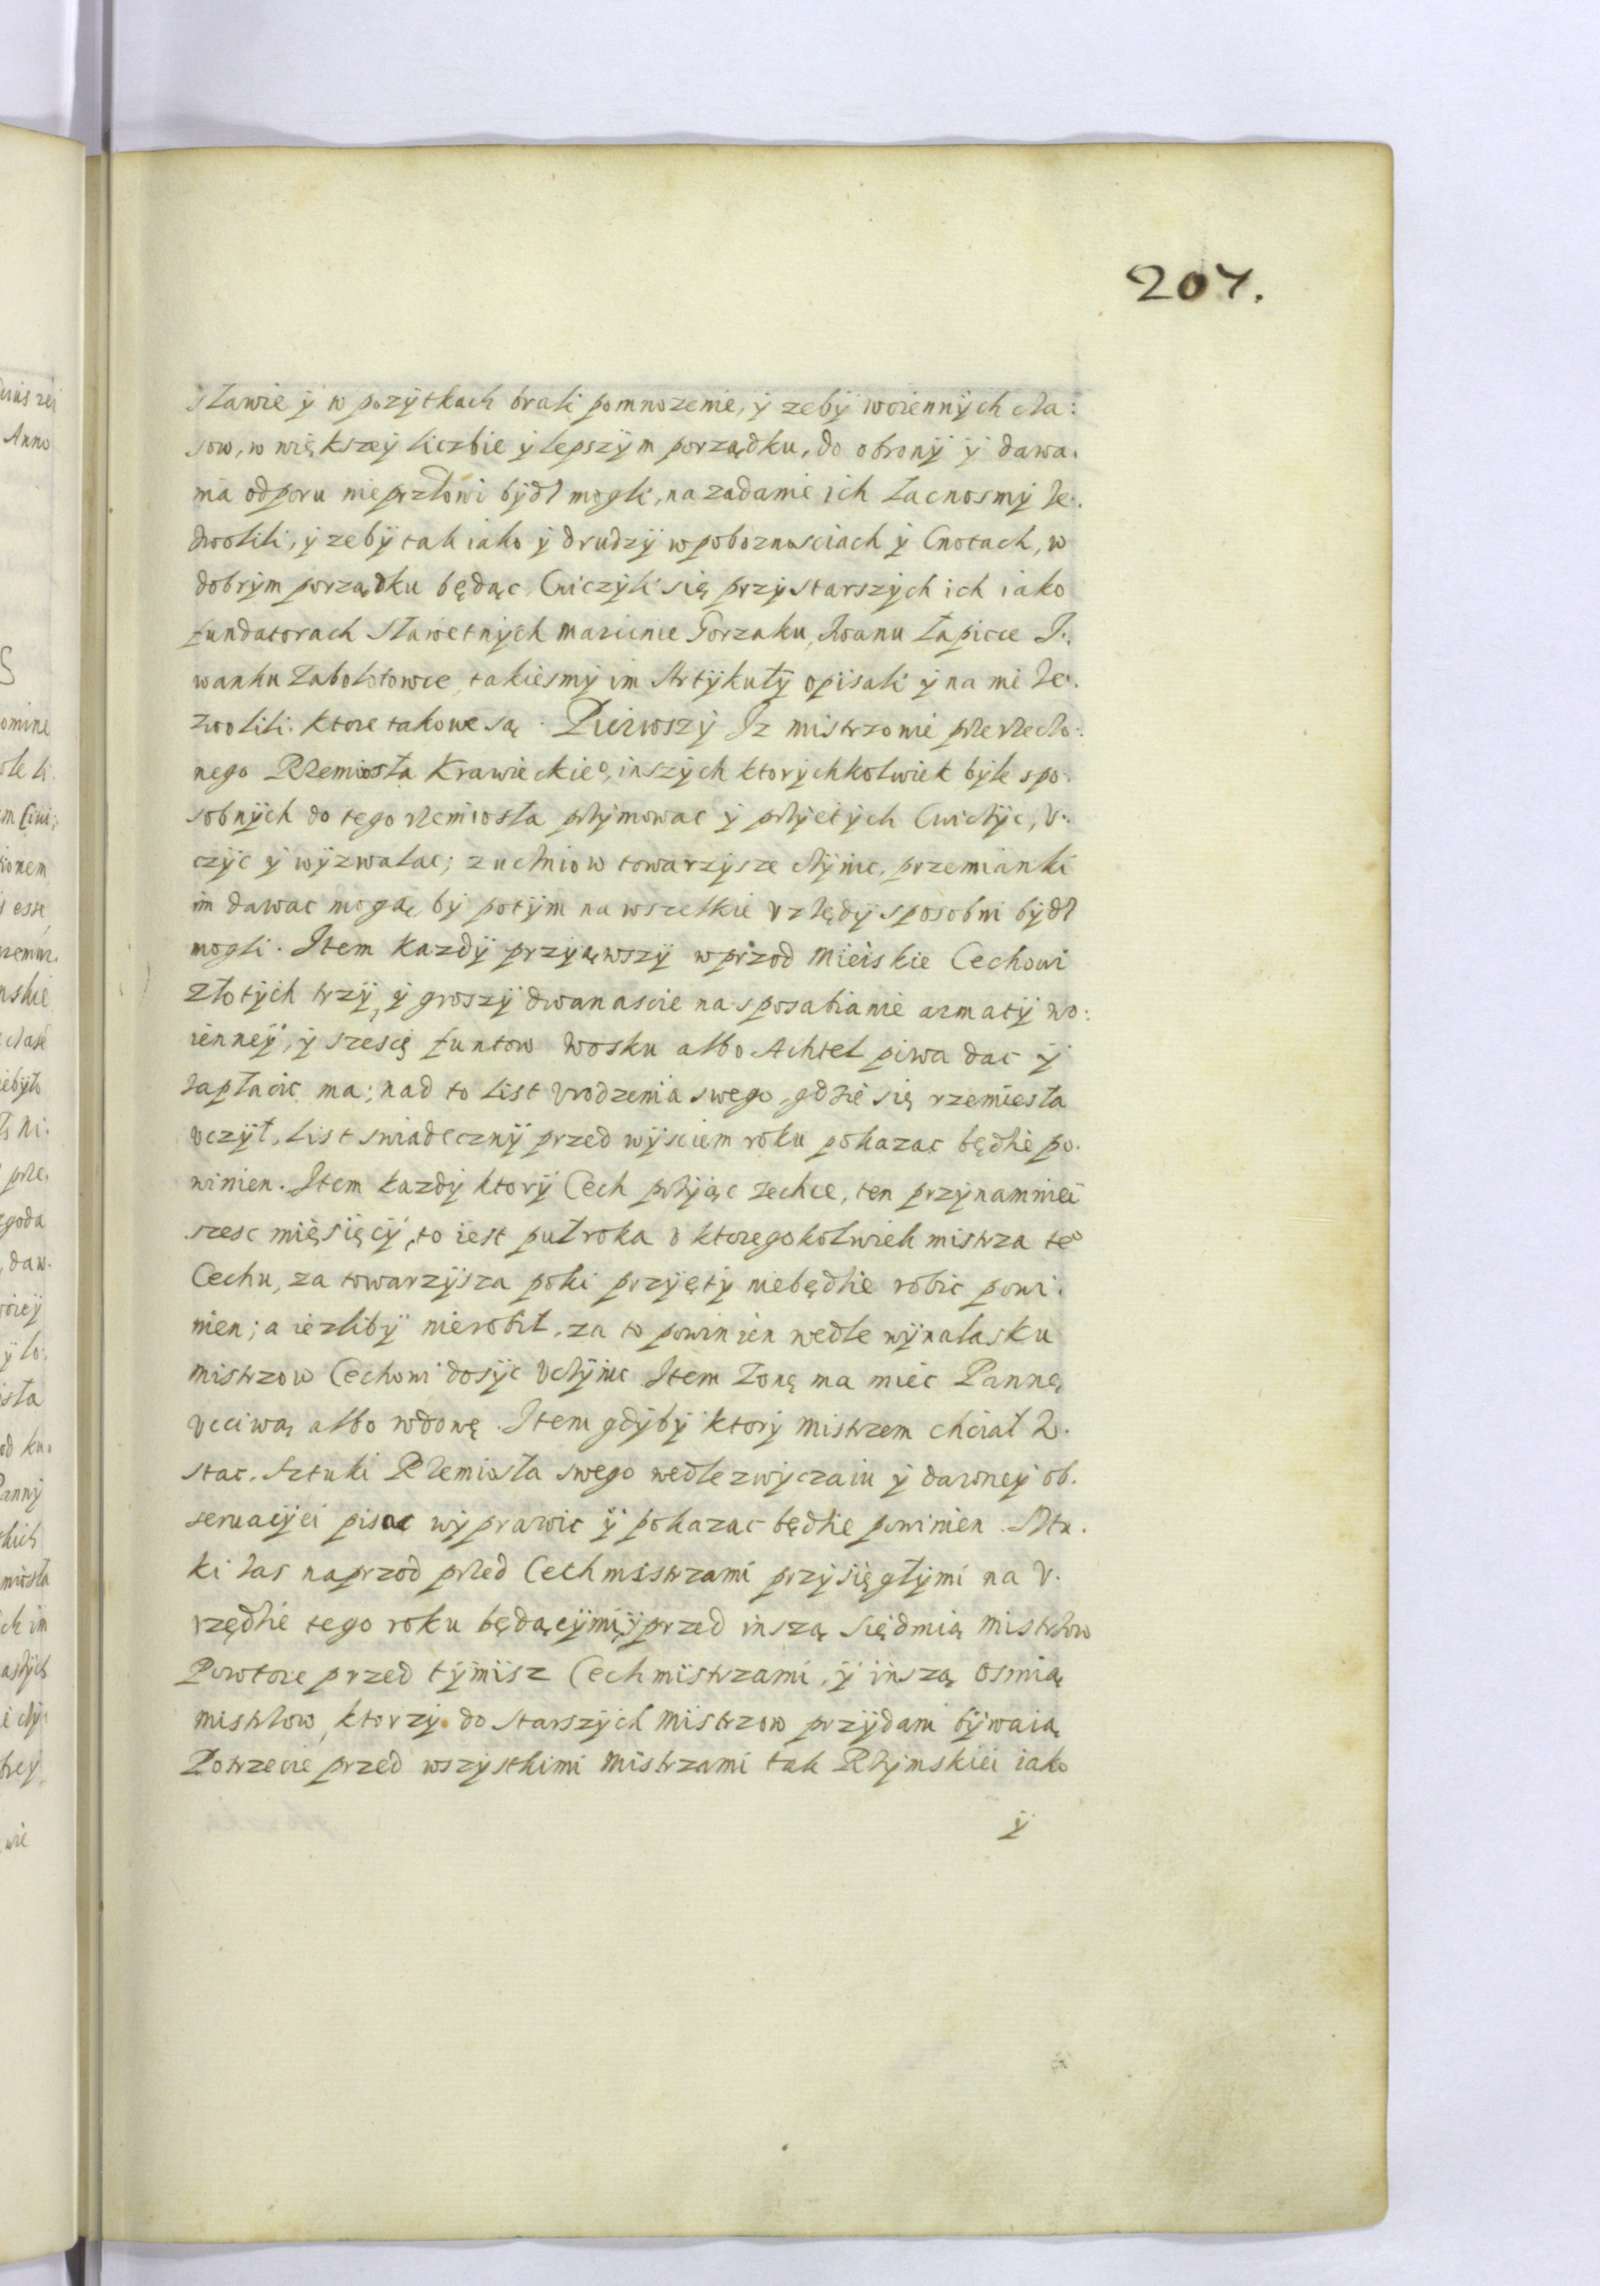 207.
sławie ÿ w pozÿtkach brali pomnozenie, ÿ zebÿ woiennÿch cza:
sow, w większeÿ liczbie ÿ lepszÿm porządku, do obronÿ ÿ dawa:
nia odporu nieprzłowi bÿdź mogli, na zadanie ich łacnosmÿ ze:
zwolili, ÿ zebÿ tak iako ÿ drudzÿ w poboznosciach ÿ Cnotach, w
dobrÿm porządku będąc Cwiczÿli się przÿ starszÿch ich iako
fundatorach Sławetnÿch Marcinie Gorzaku, Iwanu Łapicce I:
wanku Zabolotowce, takiesmÿ im Artÿkułÿ opisali ÿ na nie ze:
zwolili. ktore takowe są. Pierwszÿ Iz mistrzowie przerzeczo:
nego Rzemiosła Krawieckieº, inszÿch ktorÿchkolwiek bÿle spo:
sobnÿch do tego rzemiosła przÿmowac ÿ przÿetÿch Cwiczÿc, V:
czÿc ÿ wÿzwalac; z uczniow towarzÿsze czÿnic, przemianki
im dawac mogą, bÿ potÿm na wszelkie vrzędÿ sposobni bÿdź
mogli. Item kazdÿ przÿiąwszÿ wprzod Mieiskie Cechowi
złotÿch trzÿ, ÿ groszÿ dwanascie na sposabianie armatÿ wo:
ienneÿ, ÿ szescę funtow wosku albo Achtel piwa dac ÿ
zapłacic ma; nad to List vrodzenia swego, gdzie się rzemiesła
vczÿł, List swiadecznÿ przed wÿsciem roku pokazac będzie po:
winien. Item kazdÿ ktorÿ Cech przÿiąc zechce, ten przÿnamniei
szesc mięsięcÿ, to iest puł roka v ktoregokolwiek mistrza teº
Cechu, za towarzÿsza poki przÿiętÿ niebędzie robic powi:
nien; a iezlibÿ nierobił, za to powinien wedle wÿnalasku
mistrzow Cechowi dosÿc vczÿnic Item Zonę ma miec Pannę
vcciwą albo wdowę. Item gdÿbÿ ktorÿ mistrzem chciał Zo:
stac, Sztuki Rzemiosła swego wedle zwÿczaiu ÿ dawneÿ ob:
seruacÿei pisac wÿprawic ÿ pokazac będzie powinien. Sztu:
ki zas naprzod przed Cechmistrzami przÿsięgłÿmi na V:
rzędzie tego roku będącÿmi, ÿ przed inszą siędmią Mistrzow
Powtore przed tÿmisz Cechmistrzami, ÿ inszą osmią
mistrzow, ktorzÿ do starszÿch Mistrzow przÿdani bÿwaią
Potrzecie przed wszÿstkimi Mistrzami tak Rzÿmskiei iako
ÿ